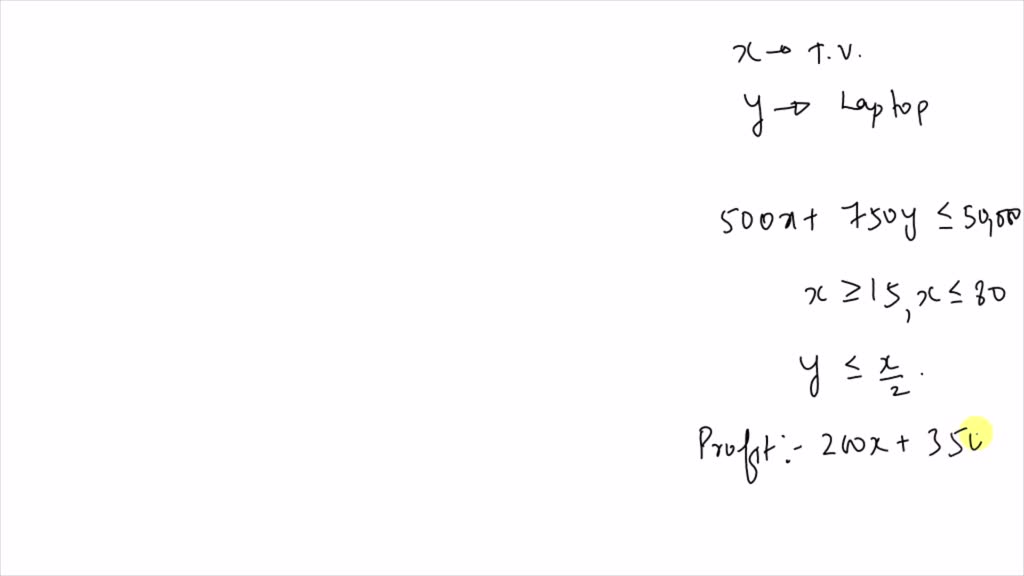 x → T.V.
y → Laptop
500x + 750y ≤ 50,000
x ≥ 15, x ≤ 80
y ≤ x/2.
Profit :- 200x + 350